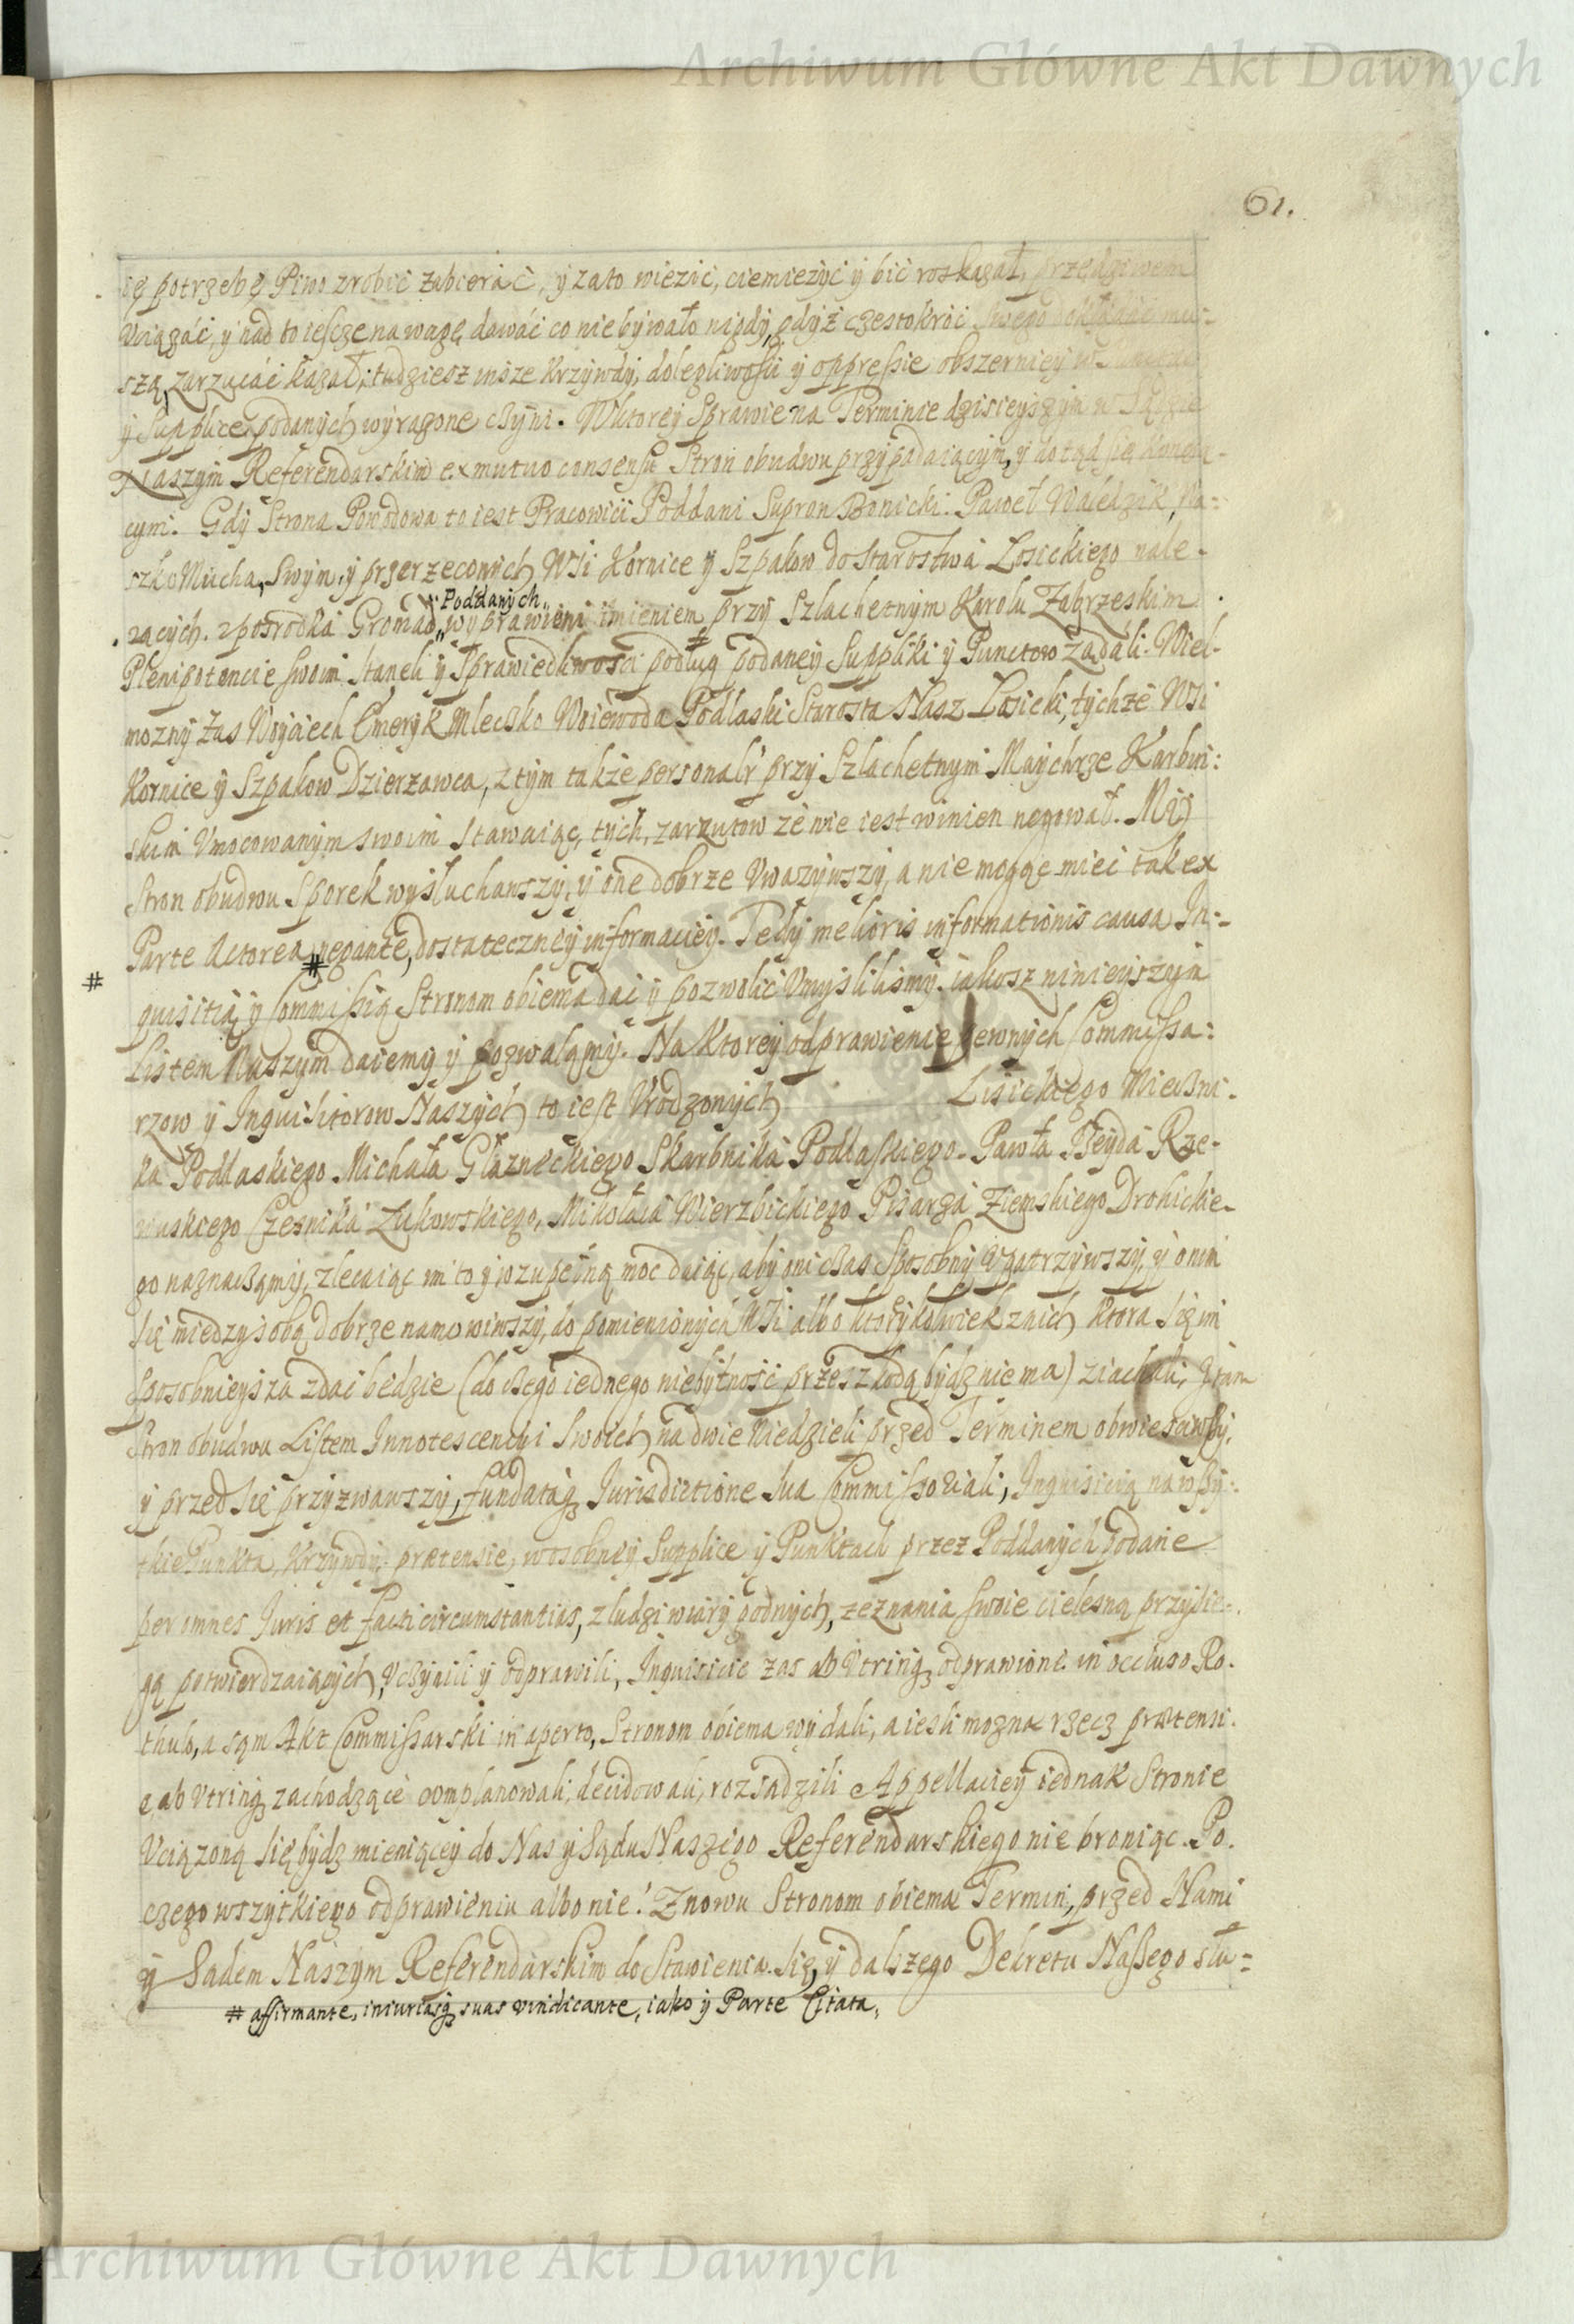 Archiwum Główne Akt Dawnych
61.
potrzebę Piwo zrobic zabierác, y zato wiezic, ciemiezyc y bić roskazał, przędziwem
Uciązáć, y nad to iescze na wagę dawáć co nie bywało nigdy, gdyż częstokroć swego dokładać mu-
szą, zarzucáć kazał; tudziesz insze krzywdy, dolegliwosci y oppressie obszerniey w
y Supplice podanych wyrazone czyni. Wktorey Sprawie na Terminie dzisieyszym w Sądzie
Naszym Referendarskim ex mutuo consensu Stron obudwu przypadaiącym, y dotąd się
cym. Gdy Strona Powodowa to iest Pracowici Poddani Supron Bonicki. Paweł
szko Mucha, Swym, y przerzeconych Wsi Kornice y Szpakow do Starostwa Łosickiego nale-
zących. zposrodka Gromad „Poddanych„ wyprawieni imieniem przy Szlachetnym Karolu Zabrzeskim
Plenipotencie swoim staneli y Sprawiedliwosci podług podaney Suppliki y Punctow ządáli. Wiel-
mozny zas Woyciech Emeryk Mleczko Woiewoda Podlaski Starosta Nasz Łosicki, tychze Wsi
Kornice y Szpakow Dzierzawca, z tym także personalr przy Szlachetnym Maychrze Karbin:
skim Umocowanym swoim stawaiąc, tych, zarzutow ze nie iest winien negował. My
Stron obudwu Sporek wysłuchawszy, y one dobrze Uwazywszy, a nie mogąc mieć tak ex
Parte Actorea # negante, dostateczney informaciey. Tedy melioris informationis causa In-
# quisitią y Commissią Stronom obiema dać y pozwolić Umyslilismy. iakosz ninieyszym
Listem Naszym daiemy y pozwalamy. Na Ktorey odprawienie pewnych Commissa:
rzow y Inquisitorow Naszych to iest Urodzonych Lisickiego Mieczni-
ka Podlaskiego. Michała Glaznickiego Skarbnika Podlaskiego. Pawła Rze-
wuskiego Czesnika Lukowskiego, Mikołaia Wierzbickiego Pisarza Ziemskiego Drohickie-
go naznaczamy, zlecaiąc im to y wzupełną moc daiąc, aby oni czas Sposobny Upatrzywszy, y onim
się miedzy sobą dobrze namowiwszy, do pomienionych Wsi albo ktorykolwiek znich ktora się im
sposobnieysza zdać będzie (do czego iednego niebytność przeszkodą bydz nie ma) ziachali, y tam
Stron obudwu Listem Innotescencyi Swoich na dwie Niedzieli przed Terminem obwiesciwszy,
y przed się przyzwawszy, fundataq Jurisdictione sua Commissoriali, Inquisicią na wszy-
tkie Punkta, Krzywdy, prætensie, wosobney Supplice y Punktach przez Poddanych podane
per omnes Juris et facti circumstantias, z ludzi wiary godnych, zeznania swoie cielesną przysie-
gą potwierdzaiących, Uczynili y odprawili, Inquisicie zas ab Utrinq odprawione in occluso Ro-
thulo, a sam Akt Commissarski in aperto, Stronom obiema wydali, a iesli mozna rzecz prætensi-
e ab Utrinq zachodzące complanowali, decidowali, rozsadzili Appellaciey iednak Stronie
Uciązoną się bydz mieniącey do Nas y Sądu Naszego Referendarskiego nie broniąc. Po
czego wszytkiego odprawieniu albo nie! Znowu Stronom obiema Termin, przed Nami
y Sadem Naszym Referendarskim do Stawienia się, y dalszego Dekretu Naszego słu-
# affirmante, iniuriasq suas vindicante, iako y Parte Citata,
Archiwum Główne Akt Dawnych